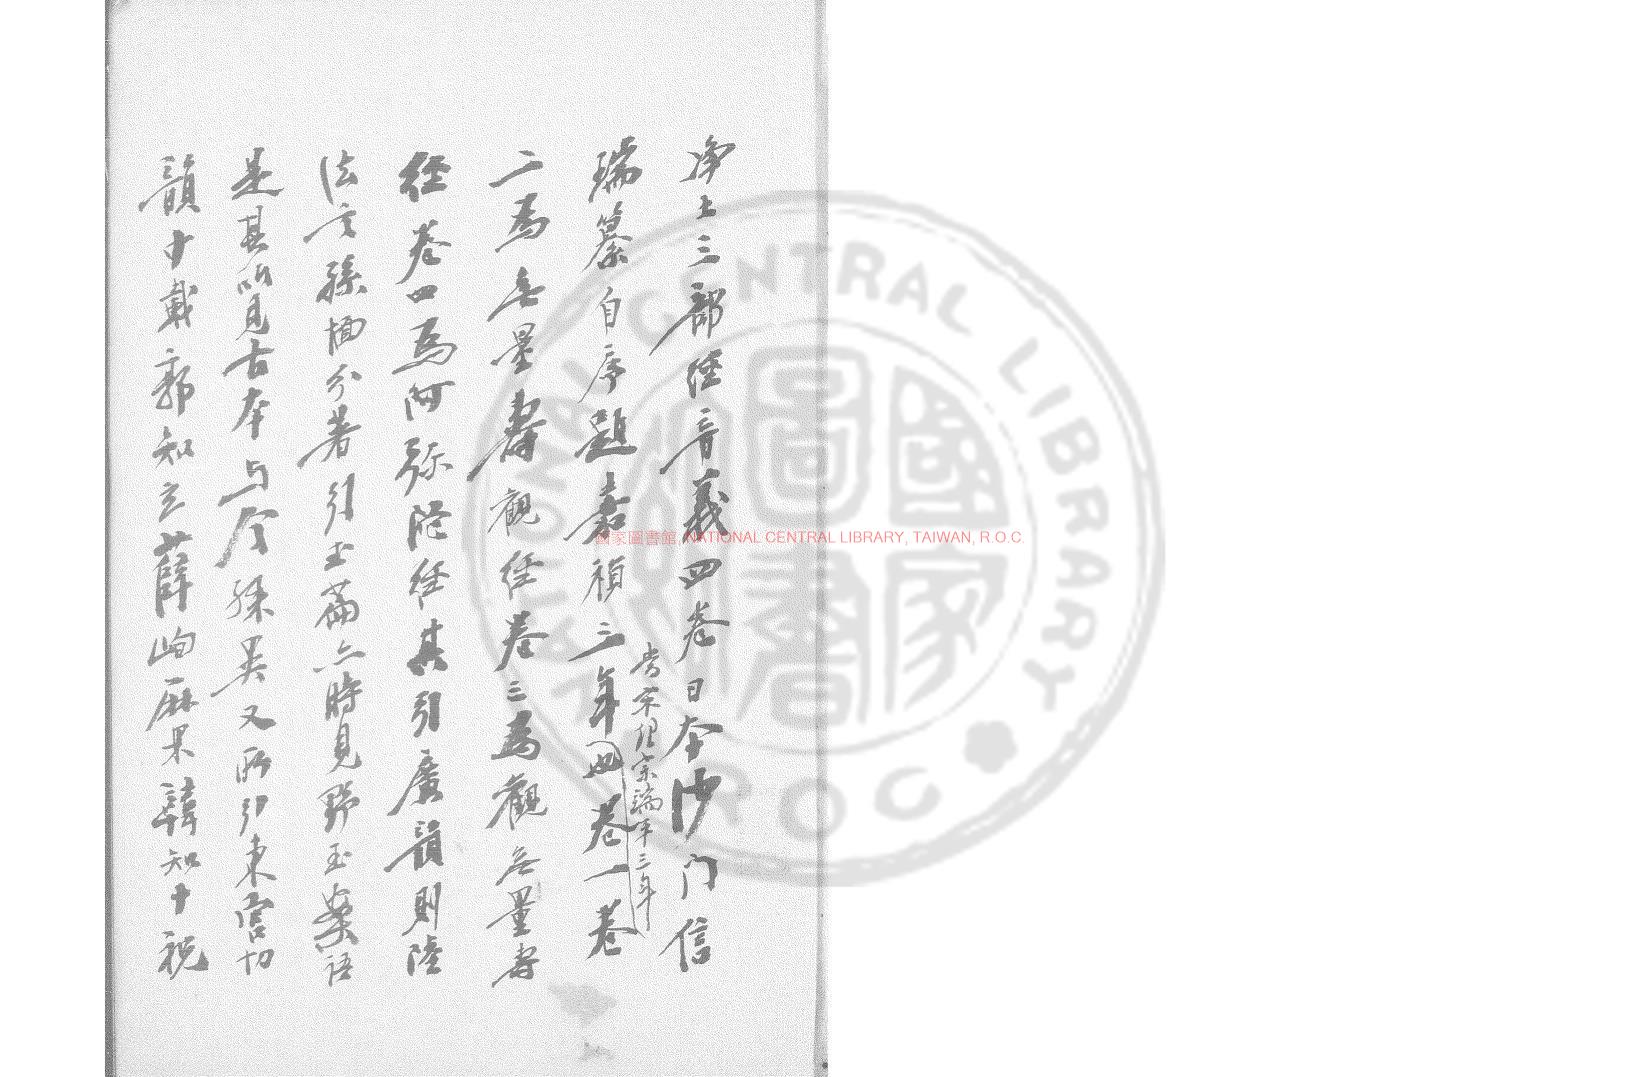 净土三部經音義四卷日本沙門信
瑞纂自序題嘉禎三年四卷一卷
當宋理宗端平三年
二為無量壽觀經卷三為觀無量壽
經卷四為阿弥陀經其引廣韻則陸
法言孫愐分著引玉篇亦時見野王案語
是其所見古本与今殊異又所引東宮切
韻中載郭知玄薛峋麻果韓知十祝
國家圖書館, NATIONAL CENTRAL LIBRARY, TAIWAN, R.O.C.
NATIONAL CENTRAL LIBRARY
TAIWAN R O C
國家圖書館